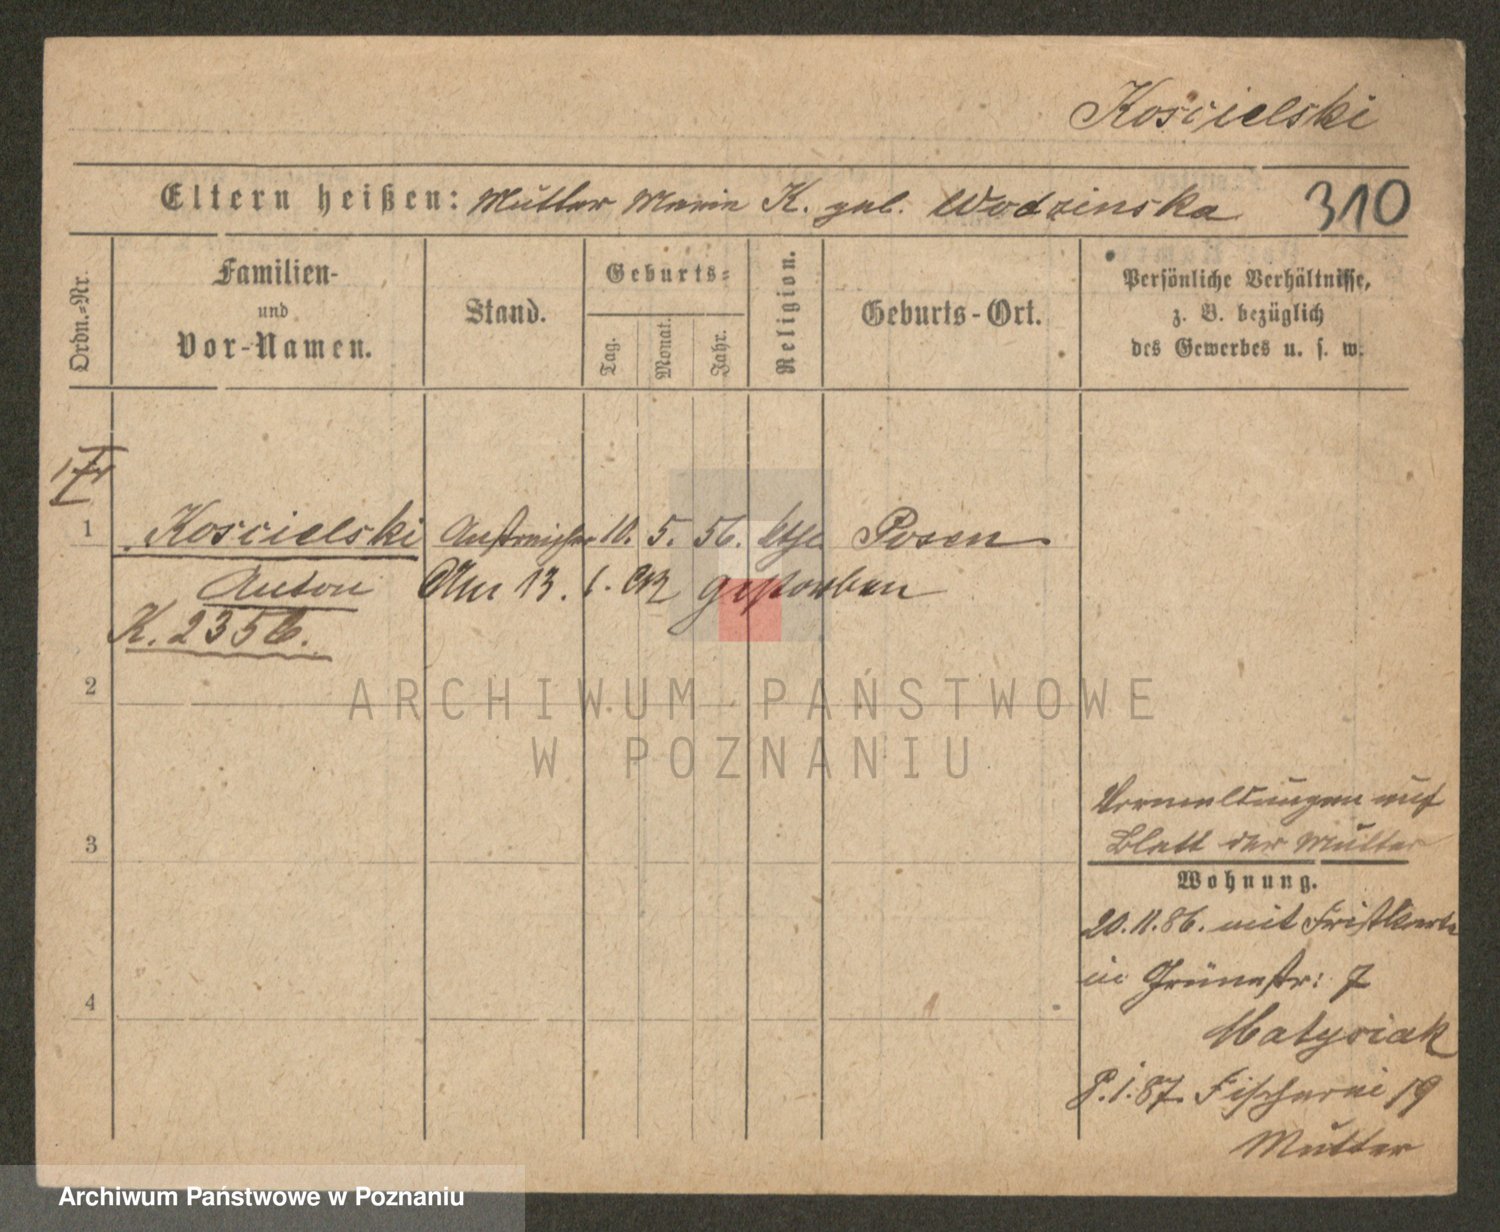 Koscielski
Eltern heißen: Mutter Marie K. geb. Wodzinska 310
Ordn.-Nr.
Familien-
und
Vor-Namen.
Stand.
Geburts-
Tag.
Monat.
Jahr.
Religion.
Geburts-Ort.
Persönliche Verhältnisse,
z. B. bezüglich
des Gewerbes u. s. w.
1 Koscielski Anstreicher 10. 5. 56. kth. Posen
Anton Am 13. gestorben
K. 2356.
2
ARCHIWUM PAŃSTWOWE
W POZNANIU
3
Vermeldungen auf
Blatt der Mutter
Wohnung.
20.11.86. mit Fristkarte
in Grünestr: 7
4
Matysiak
8.1.87. Fischerei 19
Mutter
Archiwum Państwowe w Poznaniu